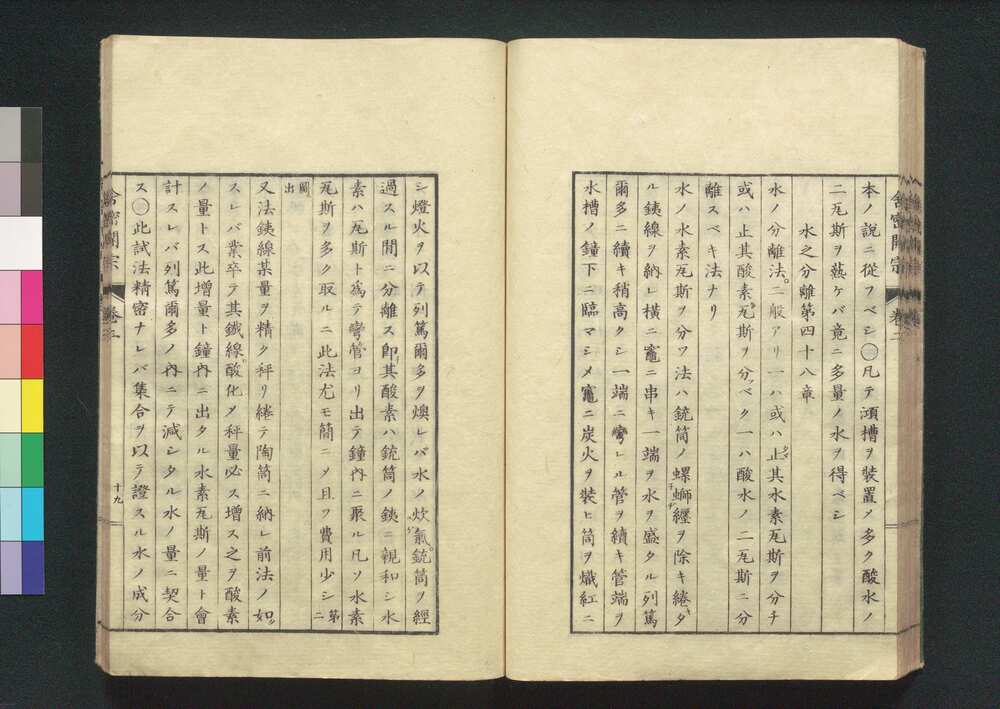 舎密開宗 卷二
本ノ説ニ從フベシ〇凡テ澒槽ヲ裝置メ多ク酸水ノ
二瓦斯ヲ爇ケバ竟ニ多量ノ水ヲ得ベシ
水之分離第四十八章
水ノ分離法。二般アリ一ハ或ハ止其水素瓦斯ヲ分チ
或ハ止其酸素瓦斯ヲ分ツベク一ハ酸水ノ二瓦斯ニ分
離スベキ法ナリ
水ノ水素瓦斯ヲ分ツ法ハ銃筒ノ螺螄纒ヲ除キ綣タ
ル銕線ヲ納レ横ニ竈ニ串キ一端ヲ水ヲ盛タル列篤
爾多ニ續キ稍高クシ一端ニ彎レル管ヲ續キ管端ヲ
水槽ノ鐘下ニ臨マシメ竈ニ炭火ヲ裝ヒ筒ヲ熾紅ニ
シ燈火ヲ以テ列篤爾多ヲ燠レバ水ノ炊氣銃筒ヲ經
過スル間ニ分離ス即其酸素ハ銃筒ノ銕ニ親和シ水
素ハ瓦斯ト爲テ彎管ヨリ出テ鐘内ニ聚ル凡ソ水素
瓦斯ヲ多ク取ルニ此法尤モ簡ニメ且ツ費用少シ第二
圖出
又法銕線某量ヲ精ク秤リ綣テ陶筒ニ納レ前法ノ如
スレバ業卒テ其鐵線酸化メ秤量必ス增ス之ヲ酸素
ノ量トス此增量ト鐘内ニ出タル水素瓦斯ノ量ト會
計スレバ列篤爾多ノ内ニテ減シタル水ノ量ニ契合
ス〇此試法精密ナレバ集合ヲ以テ證スル水ノ成分
舎密開宗 卷二 十九